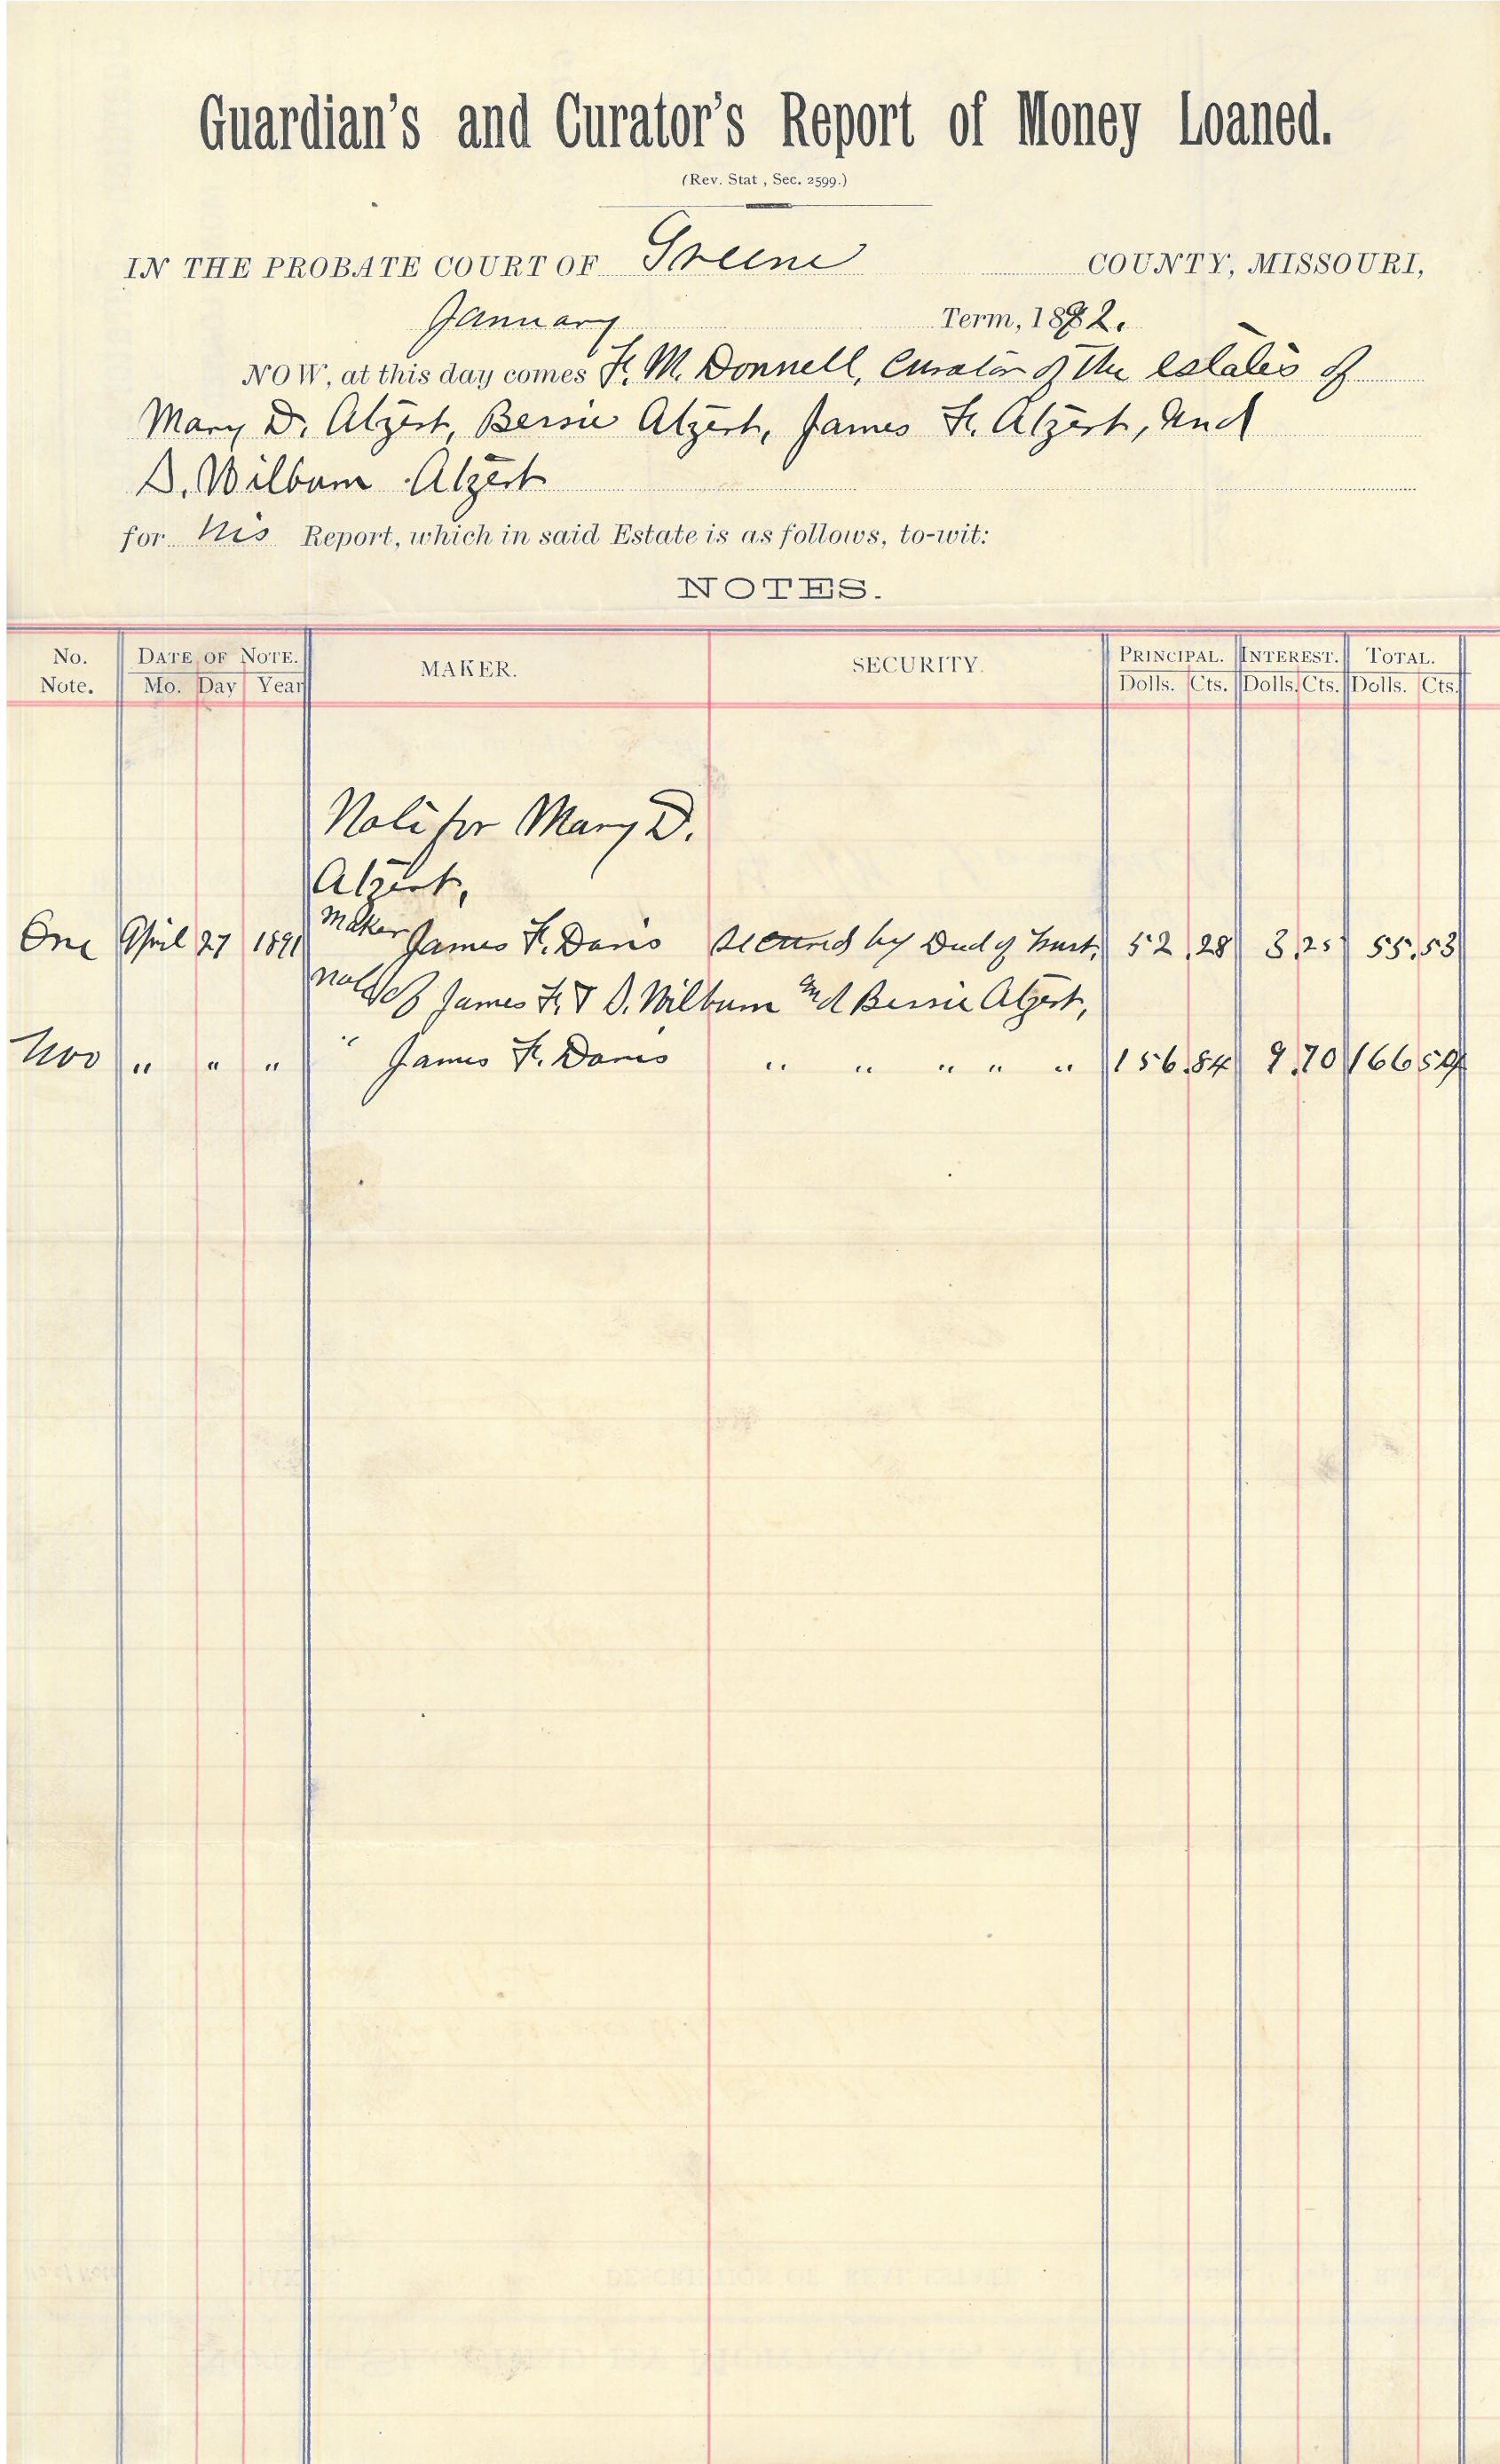 Guardian's and Curator's Report of Money Loaned.
(Rev. Stat , Sec. 2599.)
IN THE PROBATE COURT OF Greene COUNTY, MISSOURI,
January Term, 1892.
NOW, at this day comes F. M. Donnell, Curator of the estates of
Mary D. Alzert, Bessie Alzert, James F. Alzert, and
D. Wilburn Alzert
for his Report, which in said Estate is as follows, to-wit:
NOTES.
No. Note. DATE OF NOTE. Mo. Day Year MAKER. SECURITY. PRINCIPAL. Dolls. Cts. INTEREST. Dolls. Cts. TOTAL. Dolls. Cts.
Note for Mary D.
Alzert,
One April 27 1891 Maker James F. Davis Secured by Deed of Trust, 52.28 3.25 55.53
Note of James F. & D. Wilburn and Bessie Alzert,
Two " " " " James F. Davis " " " " " 156.84 9.70 166 54